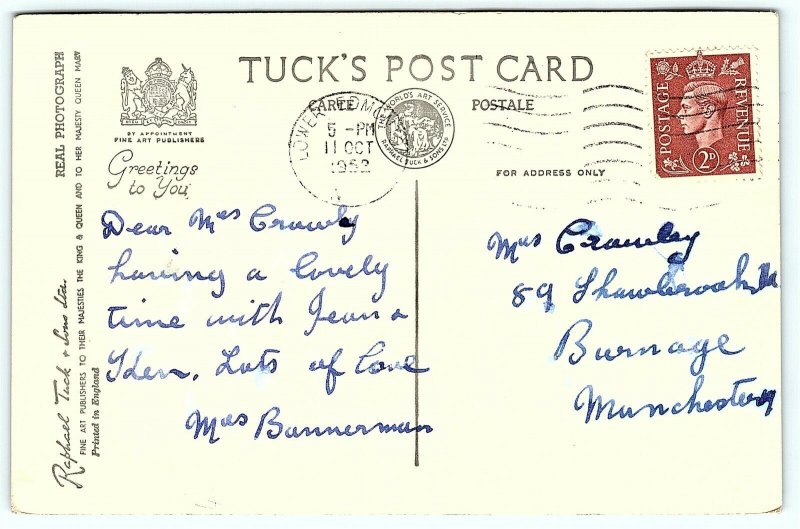 TUCK'S POST CARD
CARTE POSTALE
BY APPOINTMENT
FINE ART PUBLISHERS
Greetings
to You
LOWER EDMO
5 - PM
11 OCT
1952
THE WORLD'S ART SERVICE
RAPHAEL TUCK & SONS LTD
POSTAGE
REVENUE
2D
FOR ADDRESS ONLY
Dear Mrs Crawly
having a lovely
time with Jean &
Iden. Lots of love
Mrs Bannerman
Mrs Crawley
89 Shawbrook Rd
Burnage
Manchester 19
REAL PHOTOGRAPH
Raphael Tuck & Sons Ltd.
FINE ART PUBLISHERS TO THEIR MAJESTIES THE KING & QUEEN AND TO HER MAJESTY QUEEN MARY
Printed in England